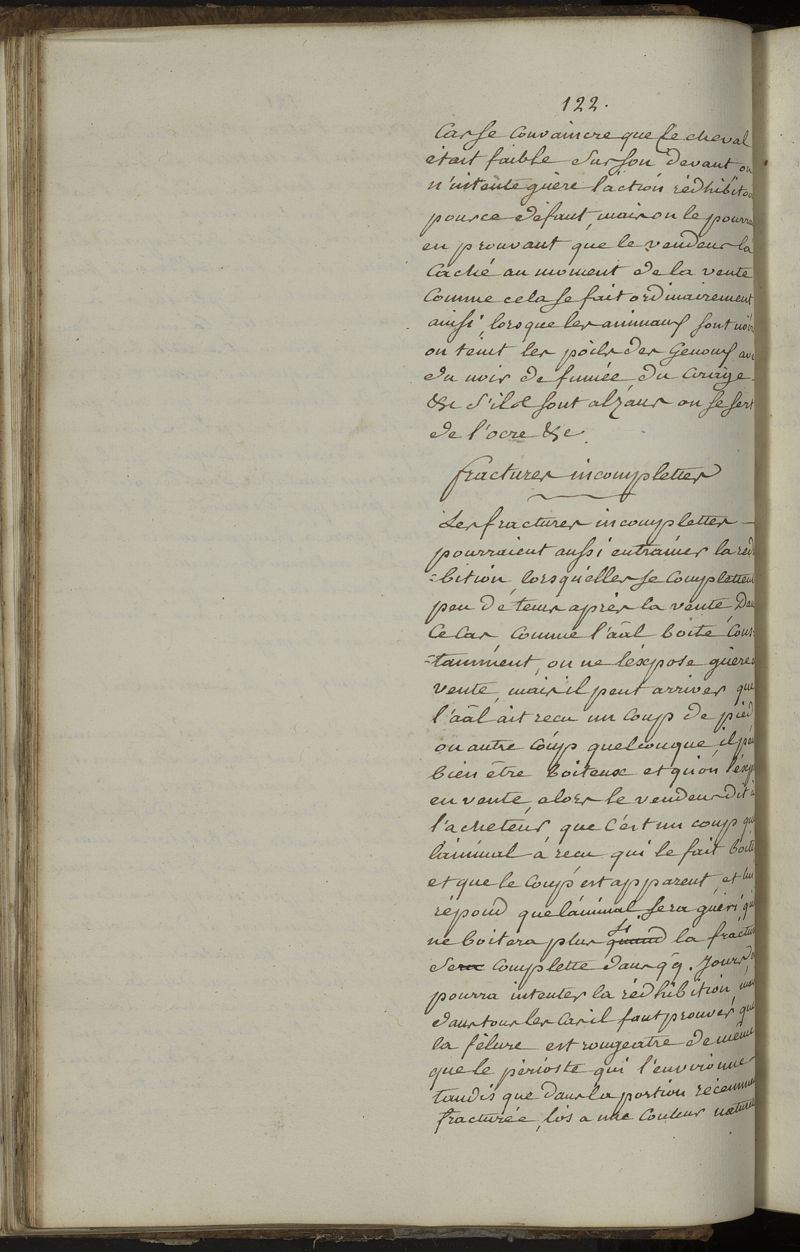 122.
Cas se Convaincre que le cheval
était faible Sur son devant on
n'intente guère l'action rédhibitoi
pour ce défaut, mais on le pourra
en prouvant que le vendeur l'a
Caché au moment de la vente
Comme cela se fait ordinairement
ainsi lorsque les animaux sont noirs
on teint les poils des Genoux av
du noir de fumée, du Cirage
&c S'ils sont alzans on se sert
de l'ocre &c.
fractures incomplettes
Les fractures incomplettes —
pourraient aussi entrainer la réd
-bition, lorsqu'elles se Complettent
peu de tems après la vente, Dans
Ce Cas, Comme l'aâl boite Cons-
-tamment, on ne l'éxpose guère
vente, mais il peut arriver que
l'aâl ait recu un Coup de pied
ou autre Coup quelconque, il peu
bien être boiteux et qu'on l'éxp
en vente, alors le vendeur dit à
l'acheteur, que C'est un coup que
l'animal à recu qui le fait boite
et que le Coup est apparent, et lui
répond que l'animal sera guéri qu
ne boitera plus quand si la fractur
Sera Complette dans qq. Jours, on
pourra intenter la rédhibition, mai
dans tous les Cas il faut prouver que
la fêlure est rougeatre de même
que le périoste qui l'environne
tandis que dans la portion récemme
fracturée, l'os a une Couleur nature